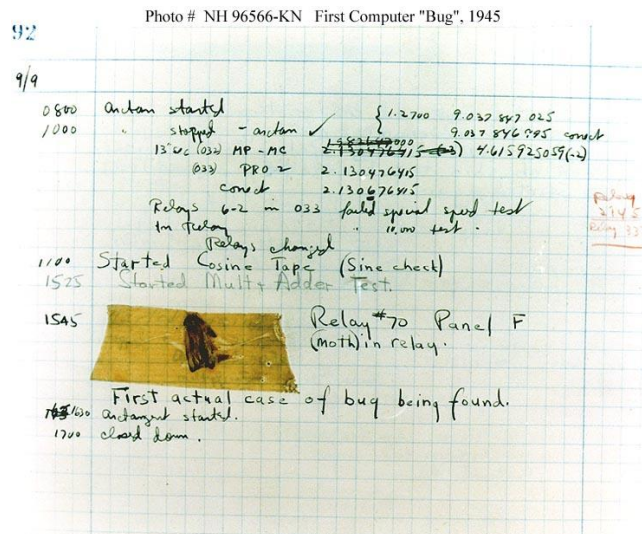 Photo # NH 96566-KN First Computer "Bug", 1945
92
9/9
0800 Antan started
1000 " stopped - antan ✓ { 1.2700 9.037 847 025
9.037 846 795 correct
13"uc (032) MP - MC 2.130476415 (-3) 4.615925059(-2)
(033) PRO 2 2.130476415
correct 2.130676415
Relays 6-2 in 033 failed special speed test
In Relay " 10,000 test.
Relay
2145
Relay 337
Relays changed
1100 Started Cosine Tape (Sine check)
1525 Started Mult + Adder Test.
1545 Relay #70 Panel F
(moth) in relay.
First actual case of bug being found.
1630 antangent started.
1700 closed down.